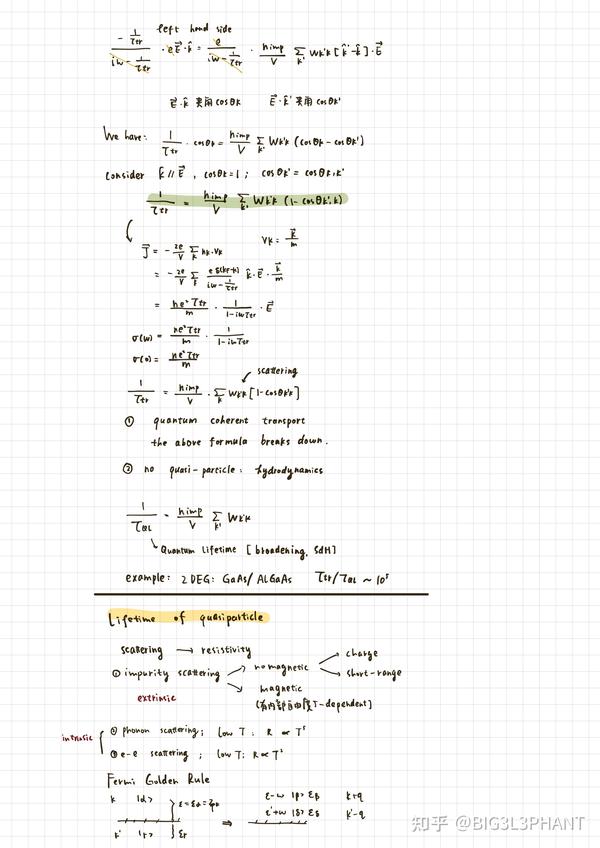 left hand side
- 1/τtr / (iω - 1/τtr) · eE⃗·k̂ = e / (iω - 1/τtr) · nimp/V Σk' Wk'k [k̂'-k̂]·E⃗
E⃗·k̂ 夹角 cosθk E⃗·k̂' 夹角 cosθk'
We have: 1/τtr · cosθk = nimp/V Σk' Wk'k (cosθk - cosθk')
consider k̂ // E⃗, cosθk=1; cosθk' = cosθk,k'
1/τtr = nimp/V Σk' Wk'k (1-cosθk',k)
J⃗ = -2e/V Σk nk·Vk Vk = k⃗/m
= -2e/V Σk eδ(kF-k) / (iω - 1/τtr) k̂·E⃗·k⃗/m
= ne²τtr/m · 1/(1-iωτtr) · E⃗
σ(ω) = ne²τtr/m · 1/(1-iωτtr)
σ(0) = ne²τtr/m
scattering
1/τtr = nimp/V · Σk' Wk'k [1-cosθk'k]
① quantum coherent transport
the above formula breaks down.
② no quasi-particle: hydrodynamics
1/τQL = nimp/V Σk' Wk'k
Quantum lifetime [broadening, SdH]
example: 2DEG: GaAs/AlGaAs τtr/τQL ~ 10⁵
Lifetime of quasiparticle
scattering → resistivity
① impurity scattering → nomagnetic → charge
→ short-range
→ magnetic
extrinsic
[有内部自由度 T-dependent]
intrinsic
② phonon scattering; low T: R ∝ T⁵
③ e-e scattering; low T: R ∝ T²
Fermi Golden Rule
k |α> ε=εα=εk ⇒ ε-ω |β> εβ k+q
ε'+ω |δ> εδ k'-q
k' |γ> εγ
知乎 @BIG3L3PHANT